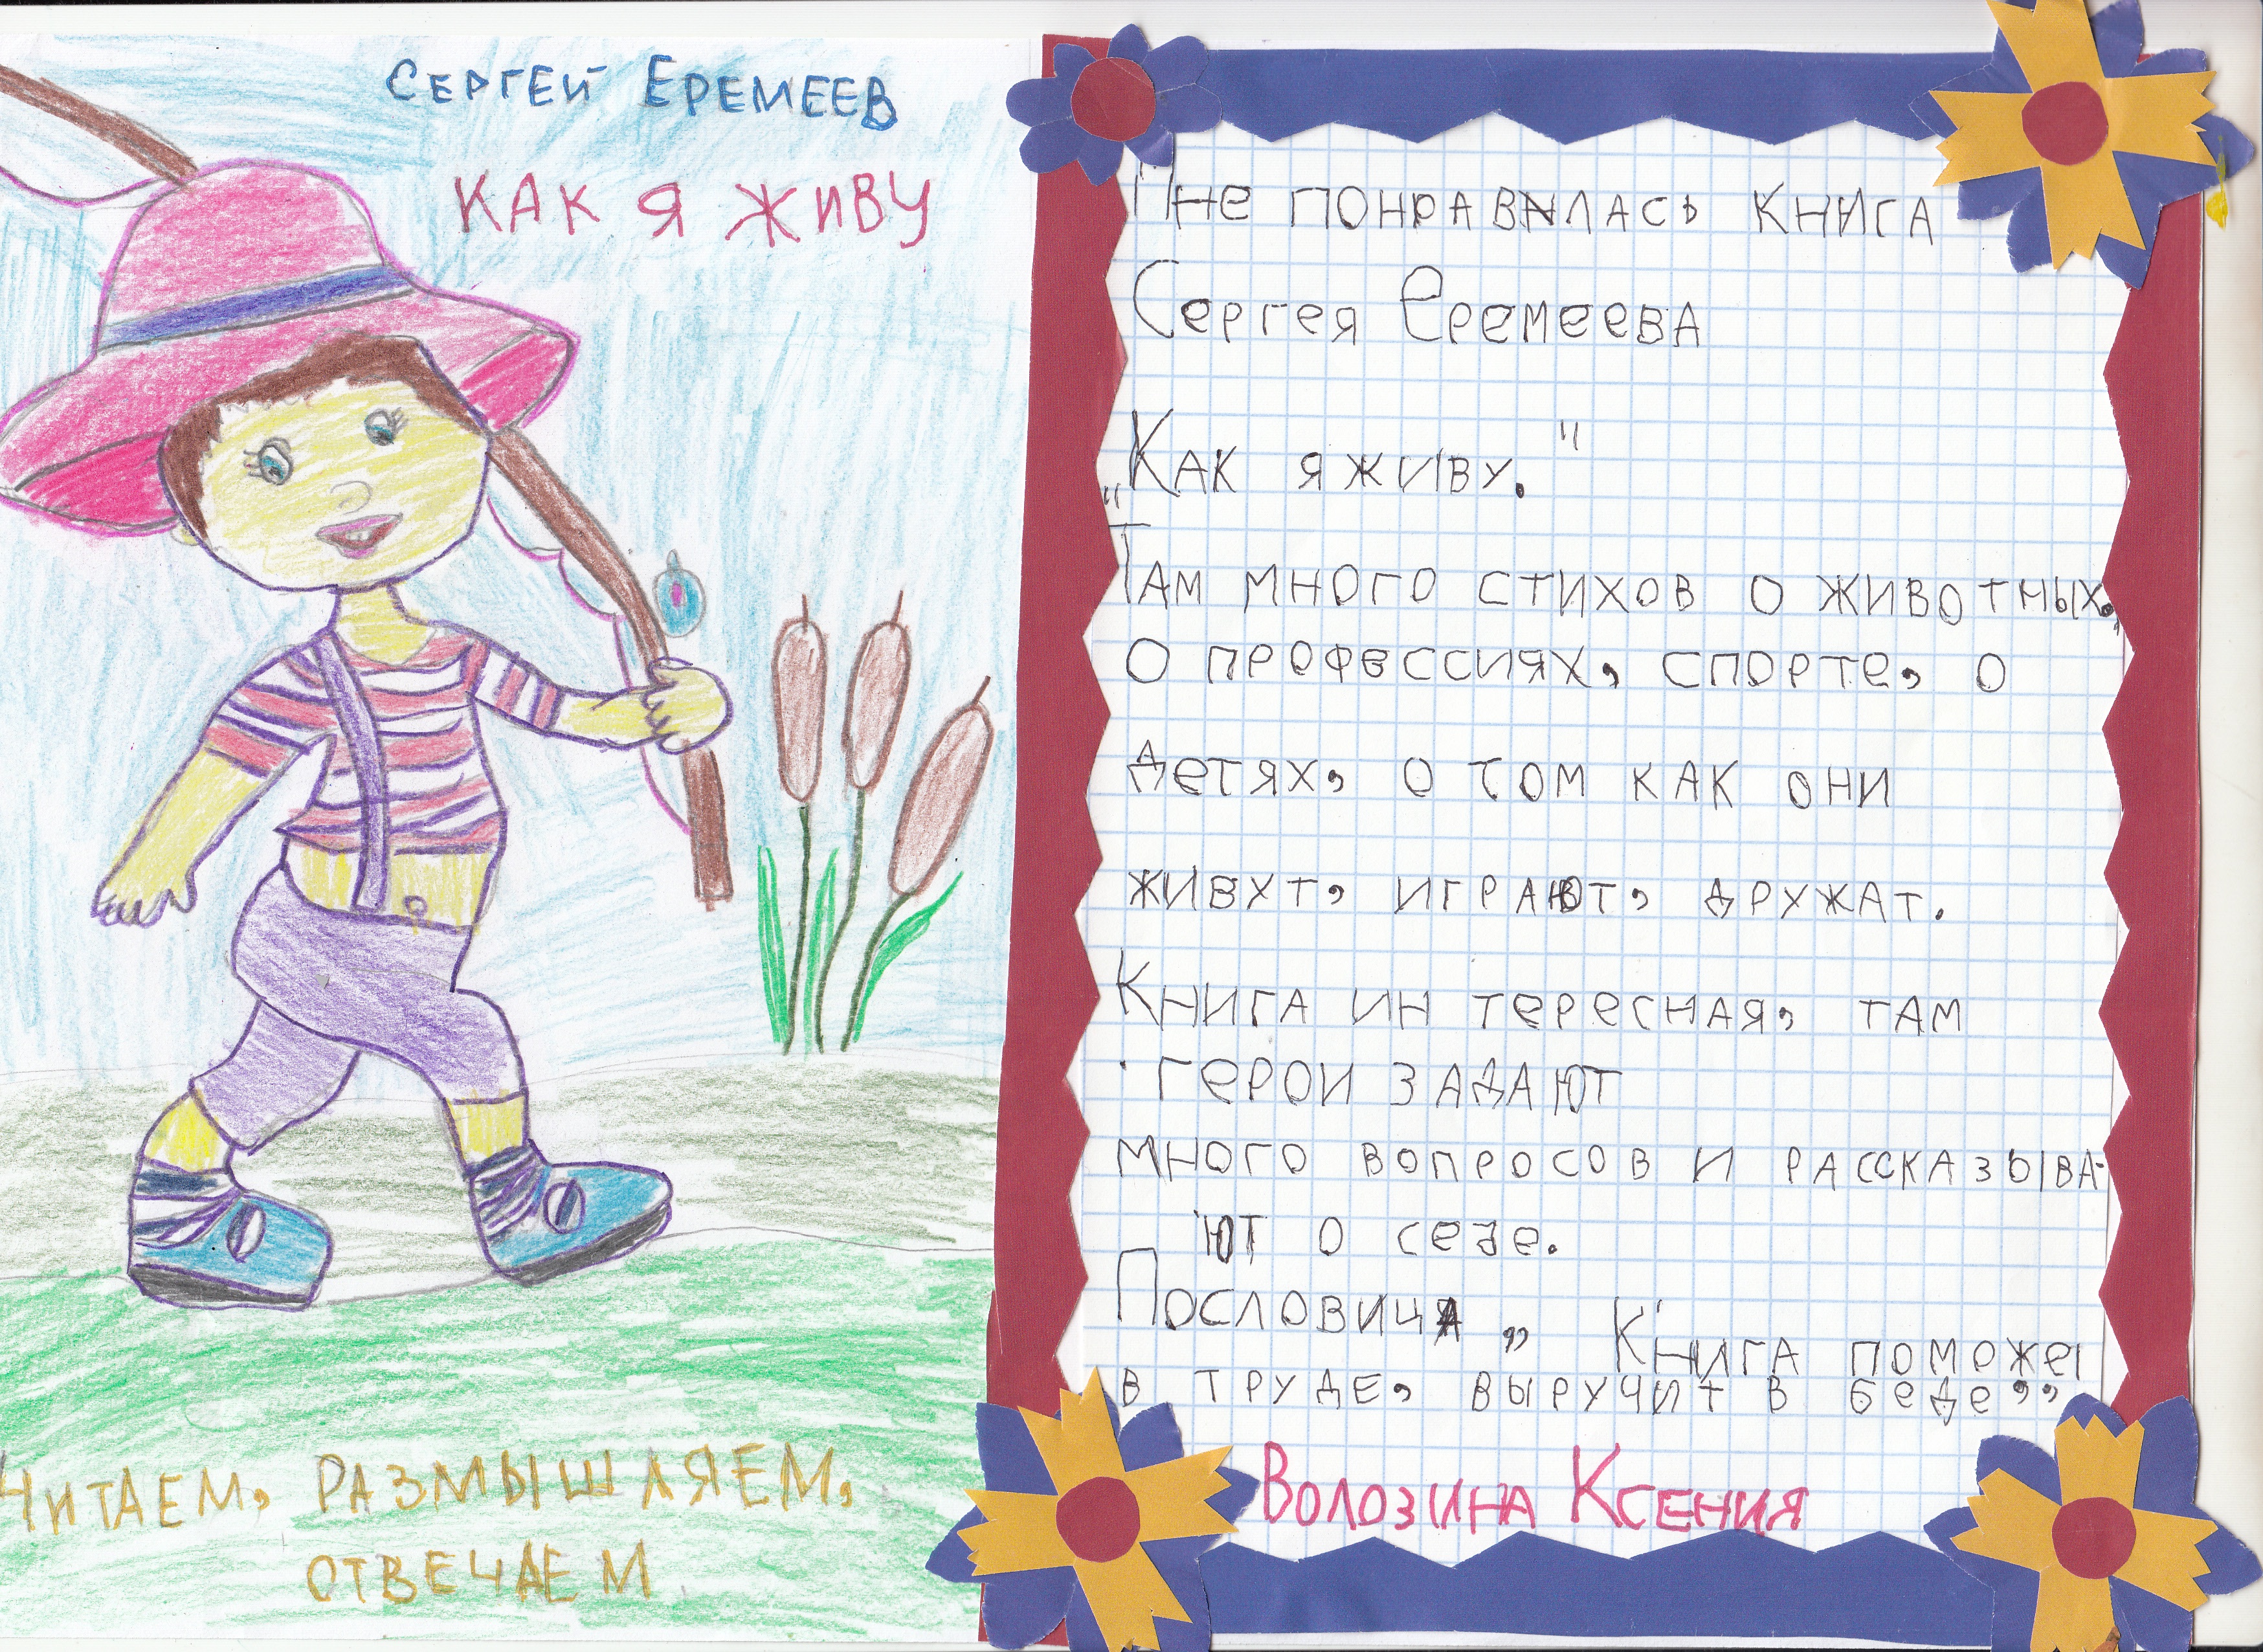 СЕРГЕЙ ЕРЕМЕЕВ
КАК Я ЖИВУ
ЧИТАЕМ, РАЗМЫШЛЯЕМ,
ОТВЕЧАЕМ
Мне понравилась книга
Сергея Еремеева
„Как я живу."
Там много стихов о животных,
о профессиях, спорте, о
детях, о том как они
живут, играют, дружат.
Книга интересная, там
герои задают
много вопросов и рассказыва-
ют о себе.
Пословица „ Книга поможет
в труде, выручит в беде”
Волозина Ксения